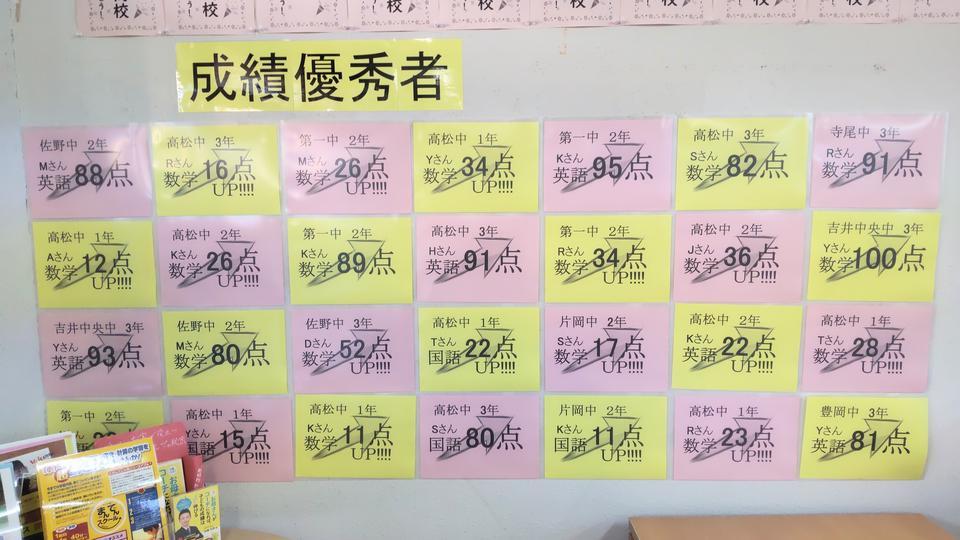 成績優秀者
佐野中 2年
Mさん
英語88点
高松中 3年
Rさん
数学16点
UP!!!!
第一中 2年
Mさん
数学26点
UP!!!!
高松中 1年
Yさん
数学34点
UP!!!!
第一中 2年
Kさん
英語95点
高松中 3年
Sさん
数学82点
寺尾中 3年
Rさん
数学91点
高松中 1年
Aさん
数学12点
UP!!!!
高松中 2年
Kさん
数学26点
UP!!!!
第一中 2年
Kさん
数学89点
高松中 3年
Hさん
英語91点
第一中 2年
Rさん
数学34点
UP!!!!
高松中 2年
Jさん
数学36点
UP!!!!
吉井中央中 3年
Yさん
数学100点
吉井中央中 3年
Yさん
英語93点
佐野中 2年
Mさん
数学80点
佐野中 3年
Dさん
数学52点
UP!!!!
高松中 1年
Tさん
国語22点
UP!!!!
片岡中 2年
Sさん
数学17点
UP!!!!
高松中 2年
Kさん
英語22点
UP!!!!
高松中 1年
Tさん
数学28点
UP!!!!
第一中 2年
高松中 1年
さん
国語15点
UP!!!!
高松中 1年
Kさん
数学11点
UP!!!!
高松中 3年
Sさん
国語80点
片岡中 2年
Kさん
国語11点
UP!!!!
高松中 1年
Rさん
数学23点
UP!!!!
豊岡中 3年
Yさん
英語81点
まんてん
スクール